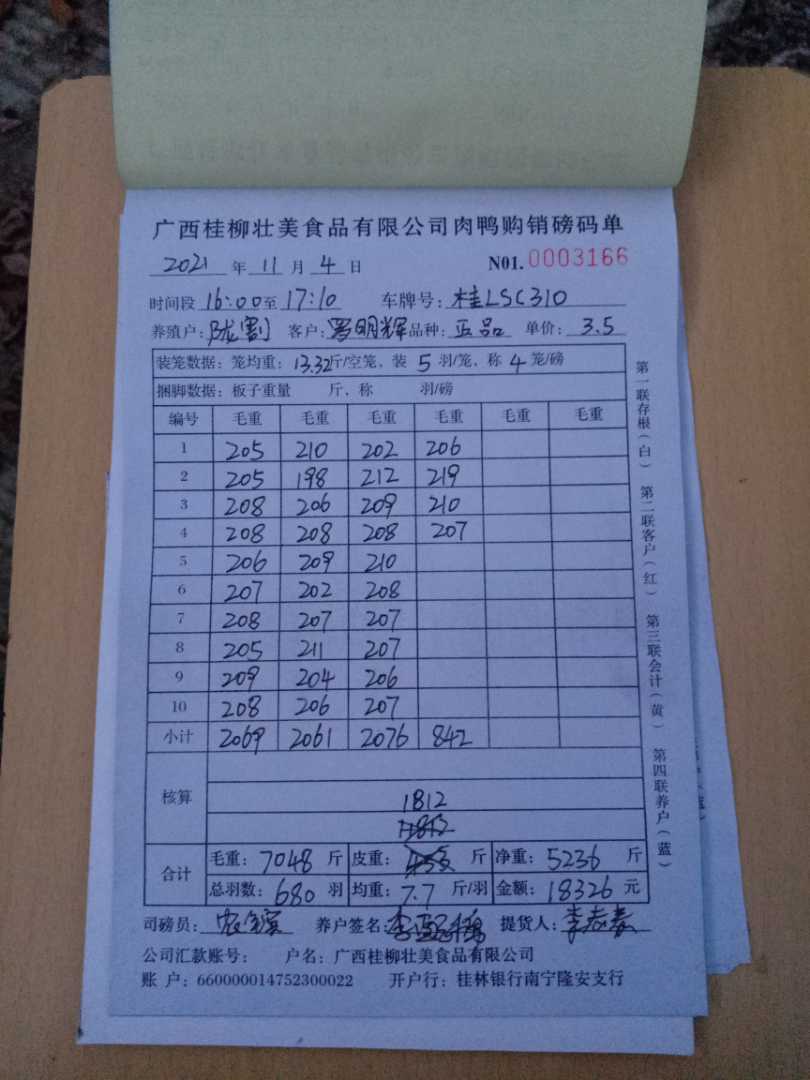 广西桂柳壮美食品有限公司肉鸭购销磅码单
2021 年 11 月 4 日 N01. 0003166
时间段 16:00至 17:10 车牌号: 桂LSC310
养殖户: 陇割 客户: 罗明辉 品种: 正品 单价: 3.5
装笼数据: 笼均重: 13.32斤/空笼、装 5 羽/笼、称 4 笼/磅
捆脚数据: 板子重量 斤、称 羽/磅
编号 毛重 毛重 毛重 毛重 毛重 毛重
1 205 210 202 206
2 205 198 212 219
3 208 206 209 210
4 208 208 208 207
5 206 209 210
6 207 202 208
7 208 207 207
8 205 211 207
9 209 204 206
10 208 206 207
小计 2069 2061 2076 842
核算
1812
合计
毛重: 7048 斤 皮重: 斤 净重: 5236 斤
总羽数: 680 羽 均重: 7.7 斤/羽 金额: 18326 元
司磅员: 养户签名: 提货人: 李志春
公司汇款账号: 户名: 广西桂柳壮美食品有限公司
账 户: 660000014752300022 开户行: 桂林银行南宁隆安支行
第一联存根(白) 第二联客户(红) 第三联会计(黄) 第四联养户(蓝)